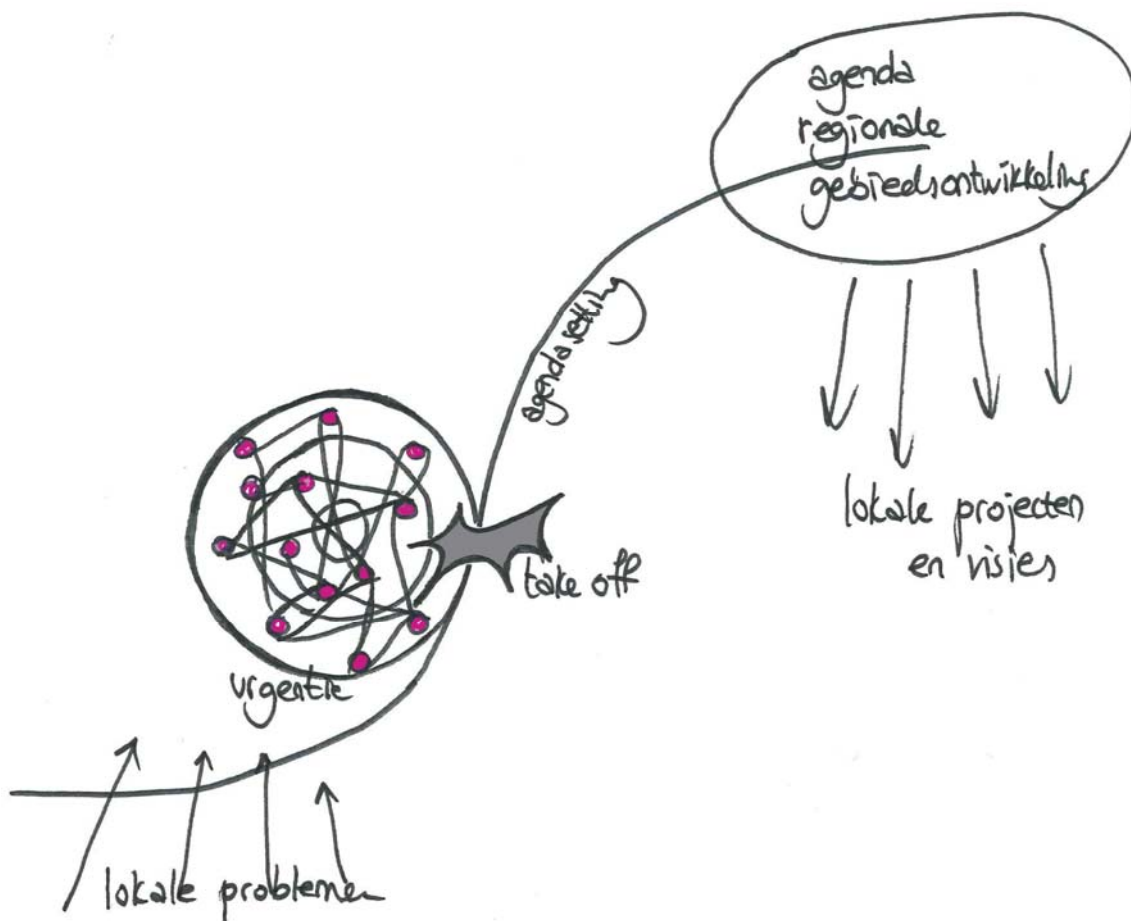 agenda
regionale
gebiedsontwikkeling
agenda setting
lokale projecten
en visies
take off
urgentie
lokale problemen